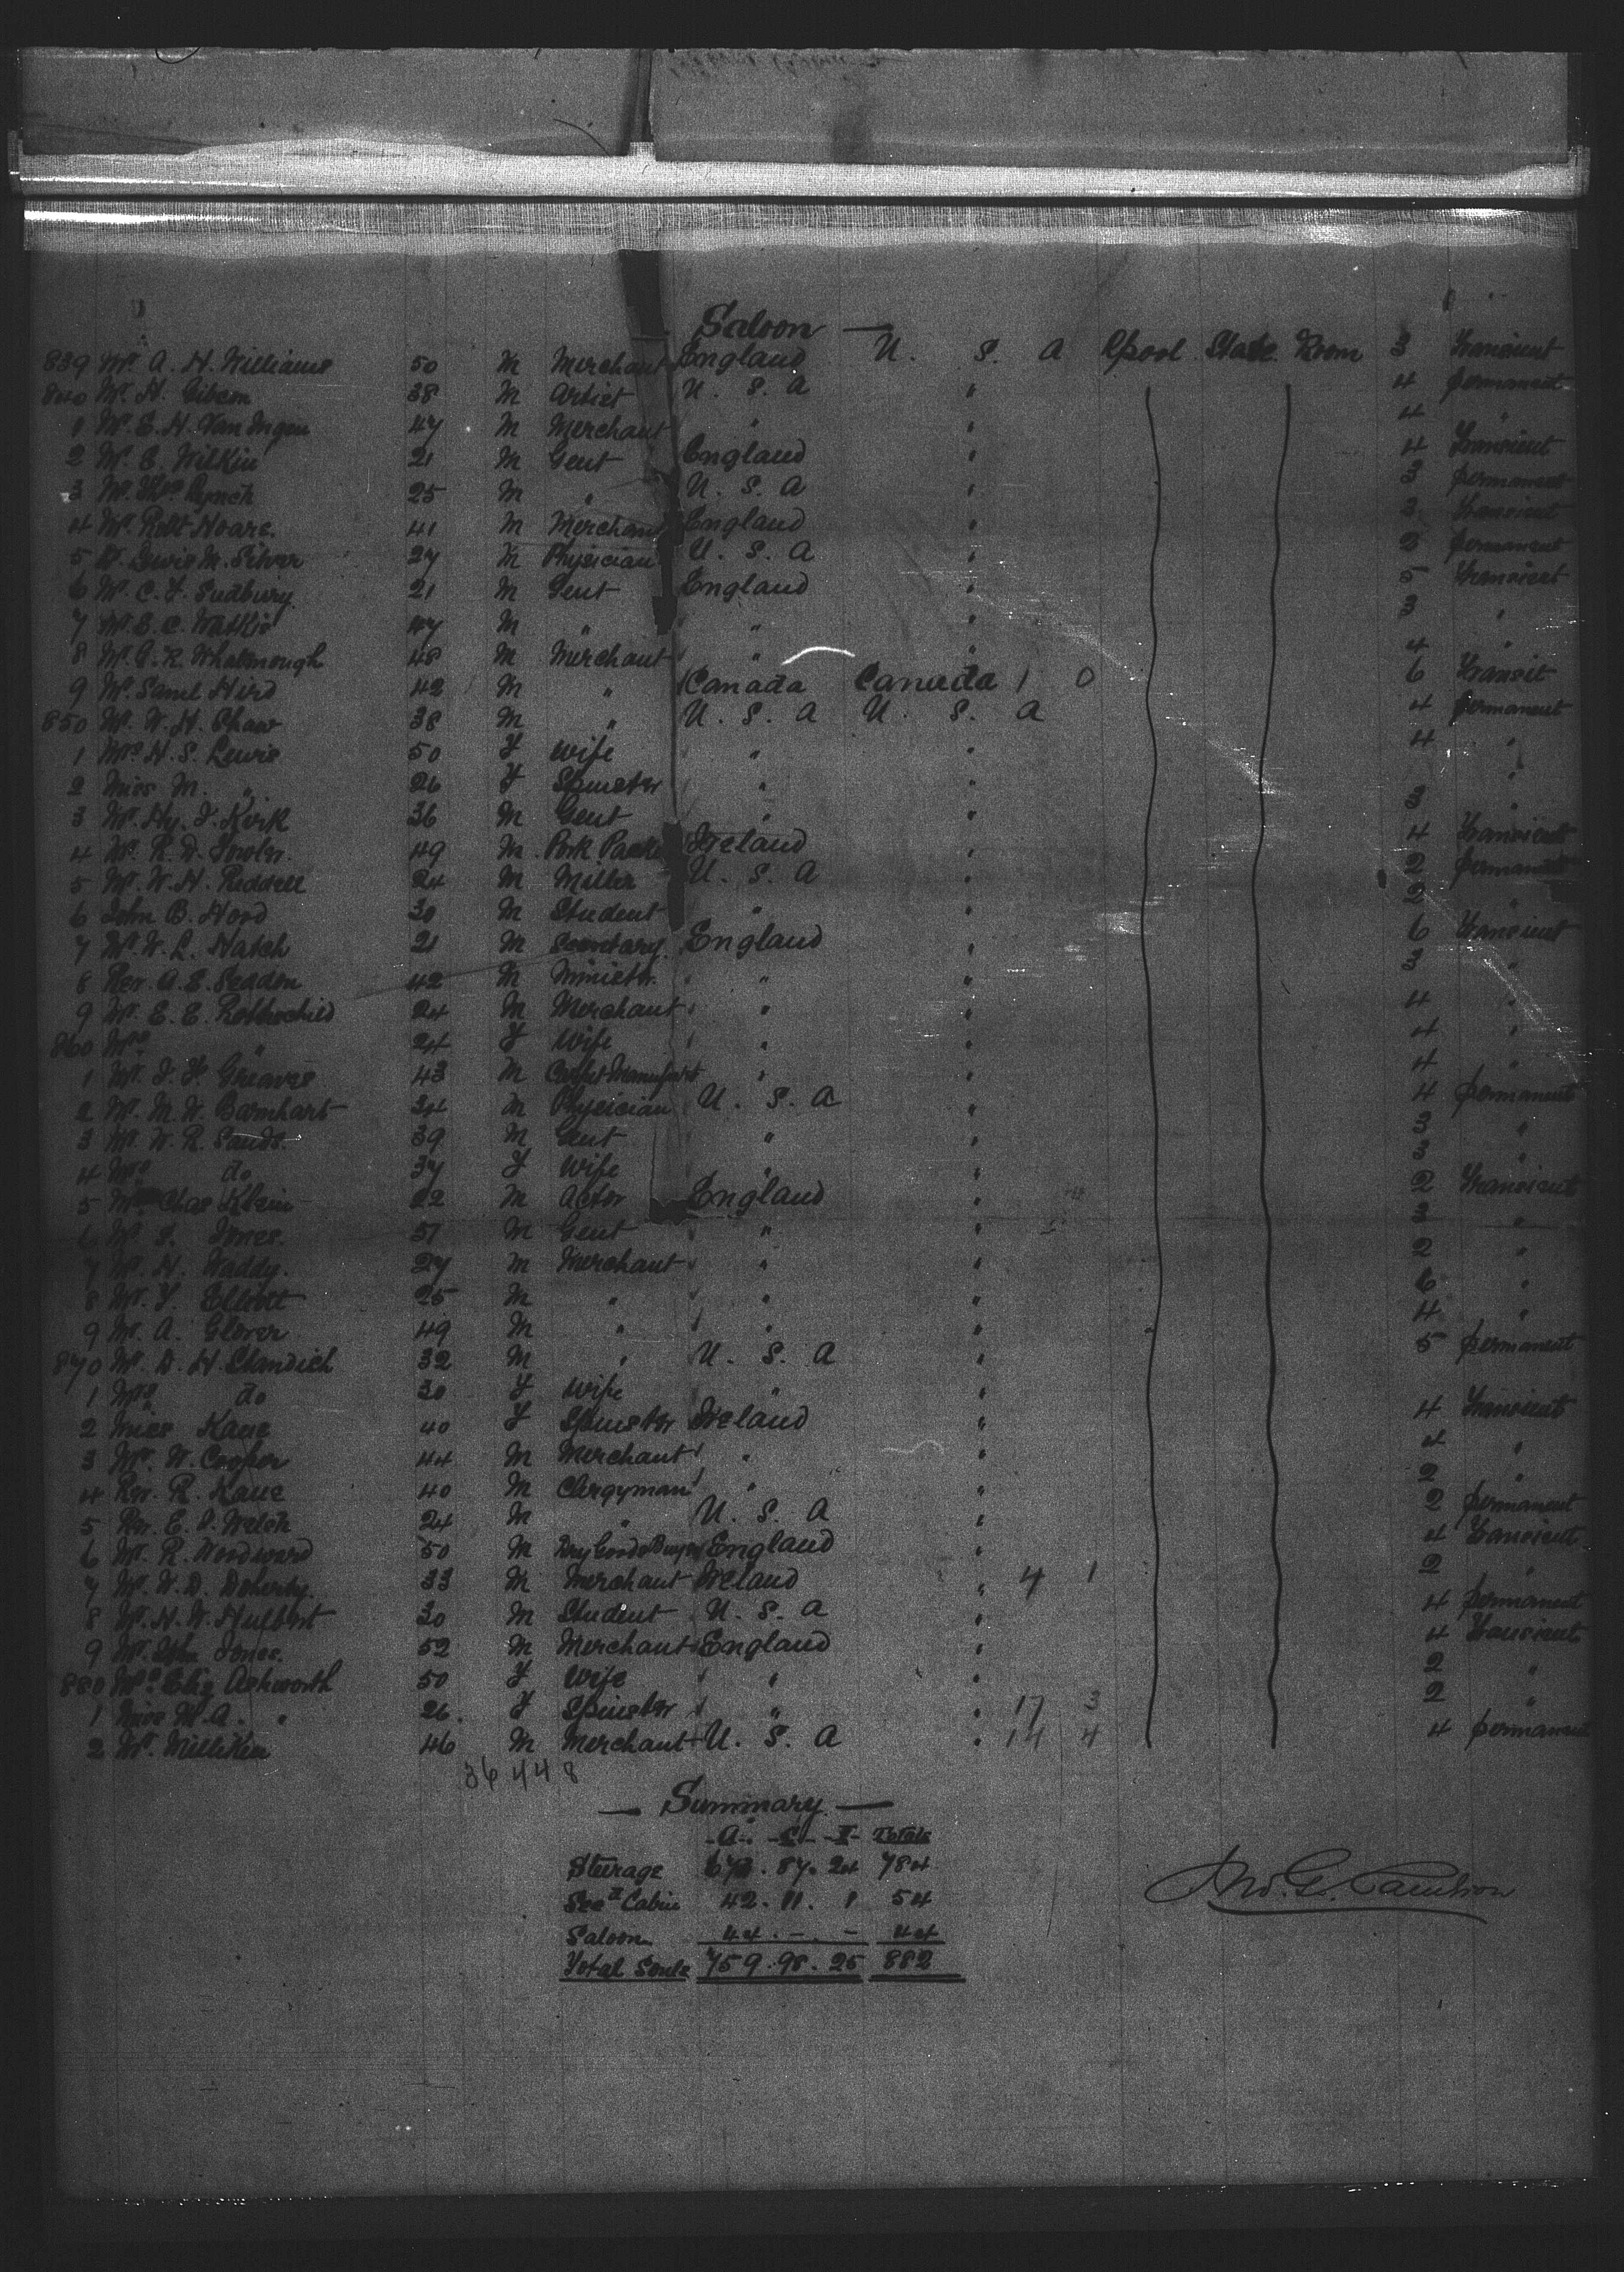 Saloon —
839 Mr A. H. Williams 50 M Merchant England U. S. A Lpool State Room 3 Transient
840 Mr. H. Gibson 38 M Artist U. S. A " 4 permanent
1 Mr. E. H. Van Ingen 47 M Merchant " " 4 "
2 Mr. E. Wilkin 21 M Gent England " 4 Transient
3 Mr. Thos Lynch 25 M " U. S. A " 3 permanent
4 Mr. Robt Hoare. 41 M Merchant England " 3 Transient
5 Dr. Lewis M. Silver 27 M Physician U. S. A " 2 permanent
6 Mr. C. F. Sudbury 21 M Gent England " 5 Transient
7 Mr. E. C. 47 M " " " 3 "
8 Mr. 48 M Merchant " " 4 "
9 Mr. Saml Hird 42 M " Canada Canada 1 0 6 Transit
850 Mr. W. H. Shaw 38 M " U. S. A U. S. A 4 permanent
1 Mrs H. S. Lewis 50 F Wife " " 4 "
2 Miss M. " 26 F Spinster " " "
3 Mr. Hy. J. Kirk 36 M Gent " " 3 "
4 Mr. R. D. Fowler. 49 M Pork Packer Ireland " 4 Transient
5 Mr. W. H. Riddell 24 M Miller U. S. A " 2 permanent
6 John B. Hord 30 M Student " " 2 "
7 Mr. W. L. Hatch 21 M Secretary England " 6 Transient
8 Rev. A. E. Seddon 42 M Minister " " 3 "
9 Mr. E. E. Rothschild 24 M Merchant " " 4 "
860 Mrs " 24 F Wife " " 4 "
1 Mr. J. H. Greaves 43 M " " 4 "
2 Mr. M. W. Barnhart 34 M Physician U. S. A " 4 permanent
3 Mr. W. R. Sands. 39 M Gent " " 3 "
4 Mrs do 37 F Wife " " 3 "
5 Mr Chas Klein 22 M Actor England " 2 Transient
6 Mr J. Jones. 51 M Gent " " 3 "
7 Mr. H. Waddy. 27 M Merchant " " 2 "
8 Mr. F. Elliott 25 M " " " 6 "
9 Mr. A. Glover 49 M " " " 4 "
870 Mr. D. H. Standish 32 M " U. S. A " 5 permanent
1 Mrs do 30 F Wife " "
2 Miss Kane 40 F Spinster Ireland " 4 Transient
3 Mr. W. Cooper 44 M Merchant " " 4 "
4 Rev. R. Kane 40 M Clergyman " " 2 "
5 Rev. E. J. Welsh 24 M " U. S. A " 2 permanent
6 Mr. R. Woodward 50 M Dry Goods Buyer England " 4 Transient
7 Mr. W. D. Doherty. 33 M Merchant Ireland " 4 1 2 "
8 Mr. H. W. Hulbert 30 M Student U. S. A " 4 permanent
9 Mr. Jones. 52 M Merchant England " 4 Transient
880 Mrs Eliz Ashworth 50 F Wife " " 2 "
1 Miss M. A. " 26. F Spinster " " 17 3 2 "
2 Mr. Milliken 46 M Merchant U. S. A " 14 4 4 permanent
36 448
— Summary. —
-A- -C- -I- Totals
Steerage 673. 87. 24 784
Secd Cabin 42. 11. 1 54
Saloon 44. - . - 44
Total Souls 759. 98. 25 882